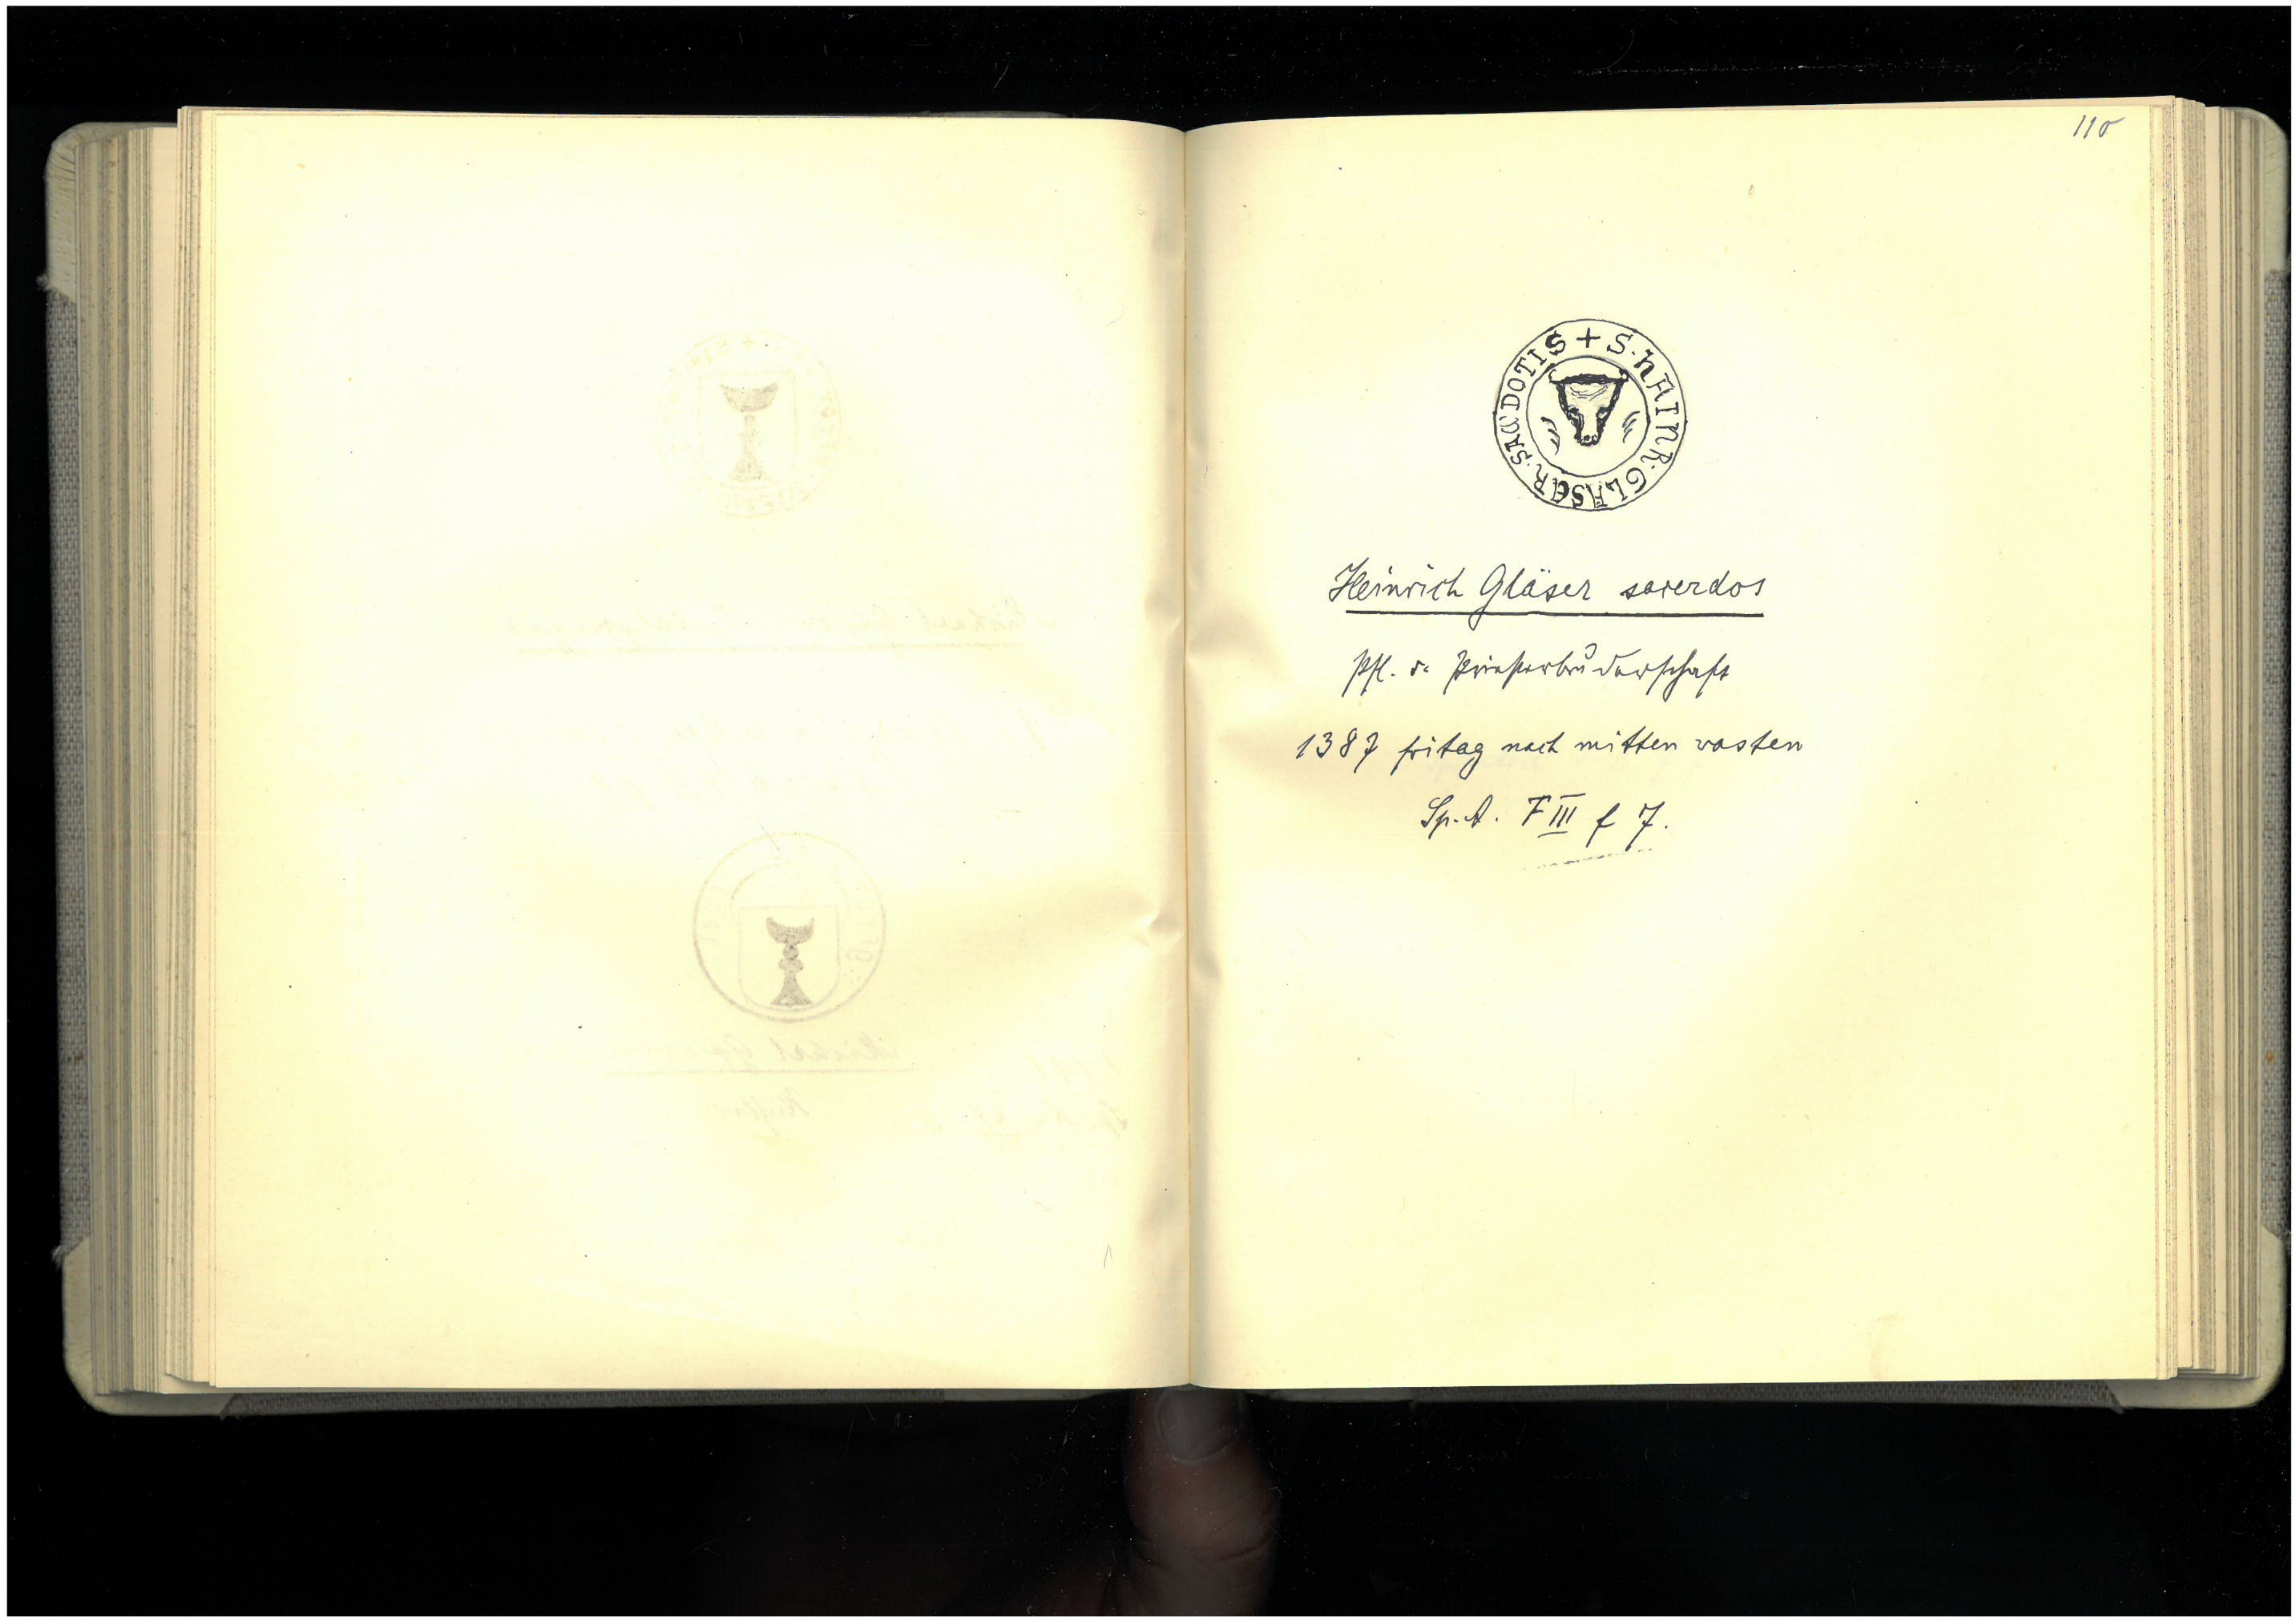 110
+ S · HAINR · GLASER · SACDOTIS
Heinrich Gläser sacerdos
Pfl. d. Priesterbruderschaft
1387 fritag nach mitten vasten
Sp. A. F III f 7.